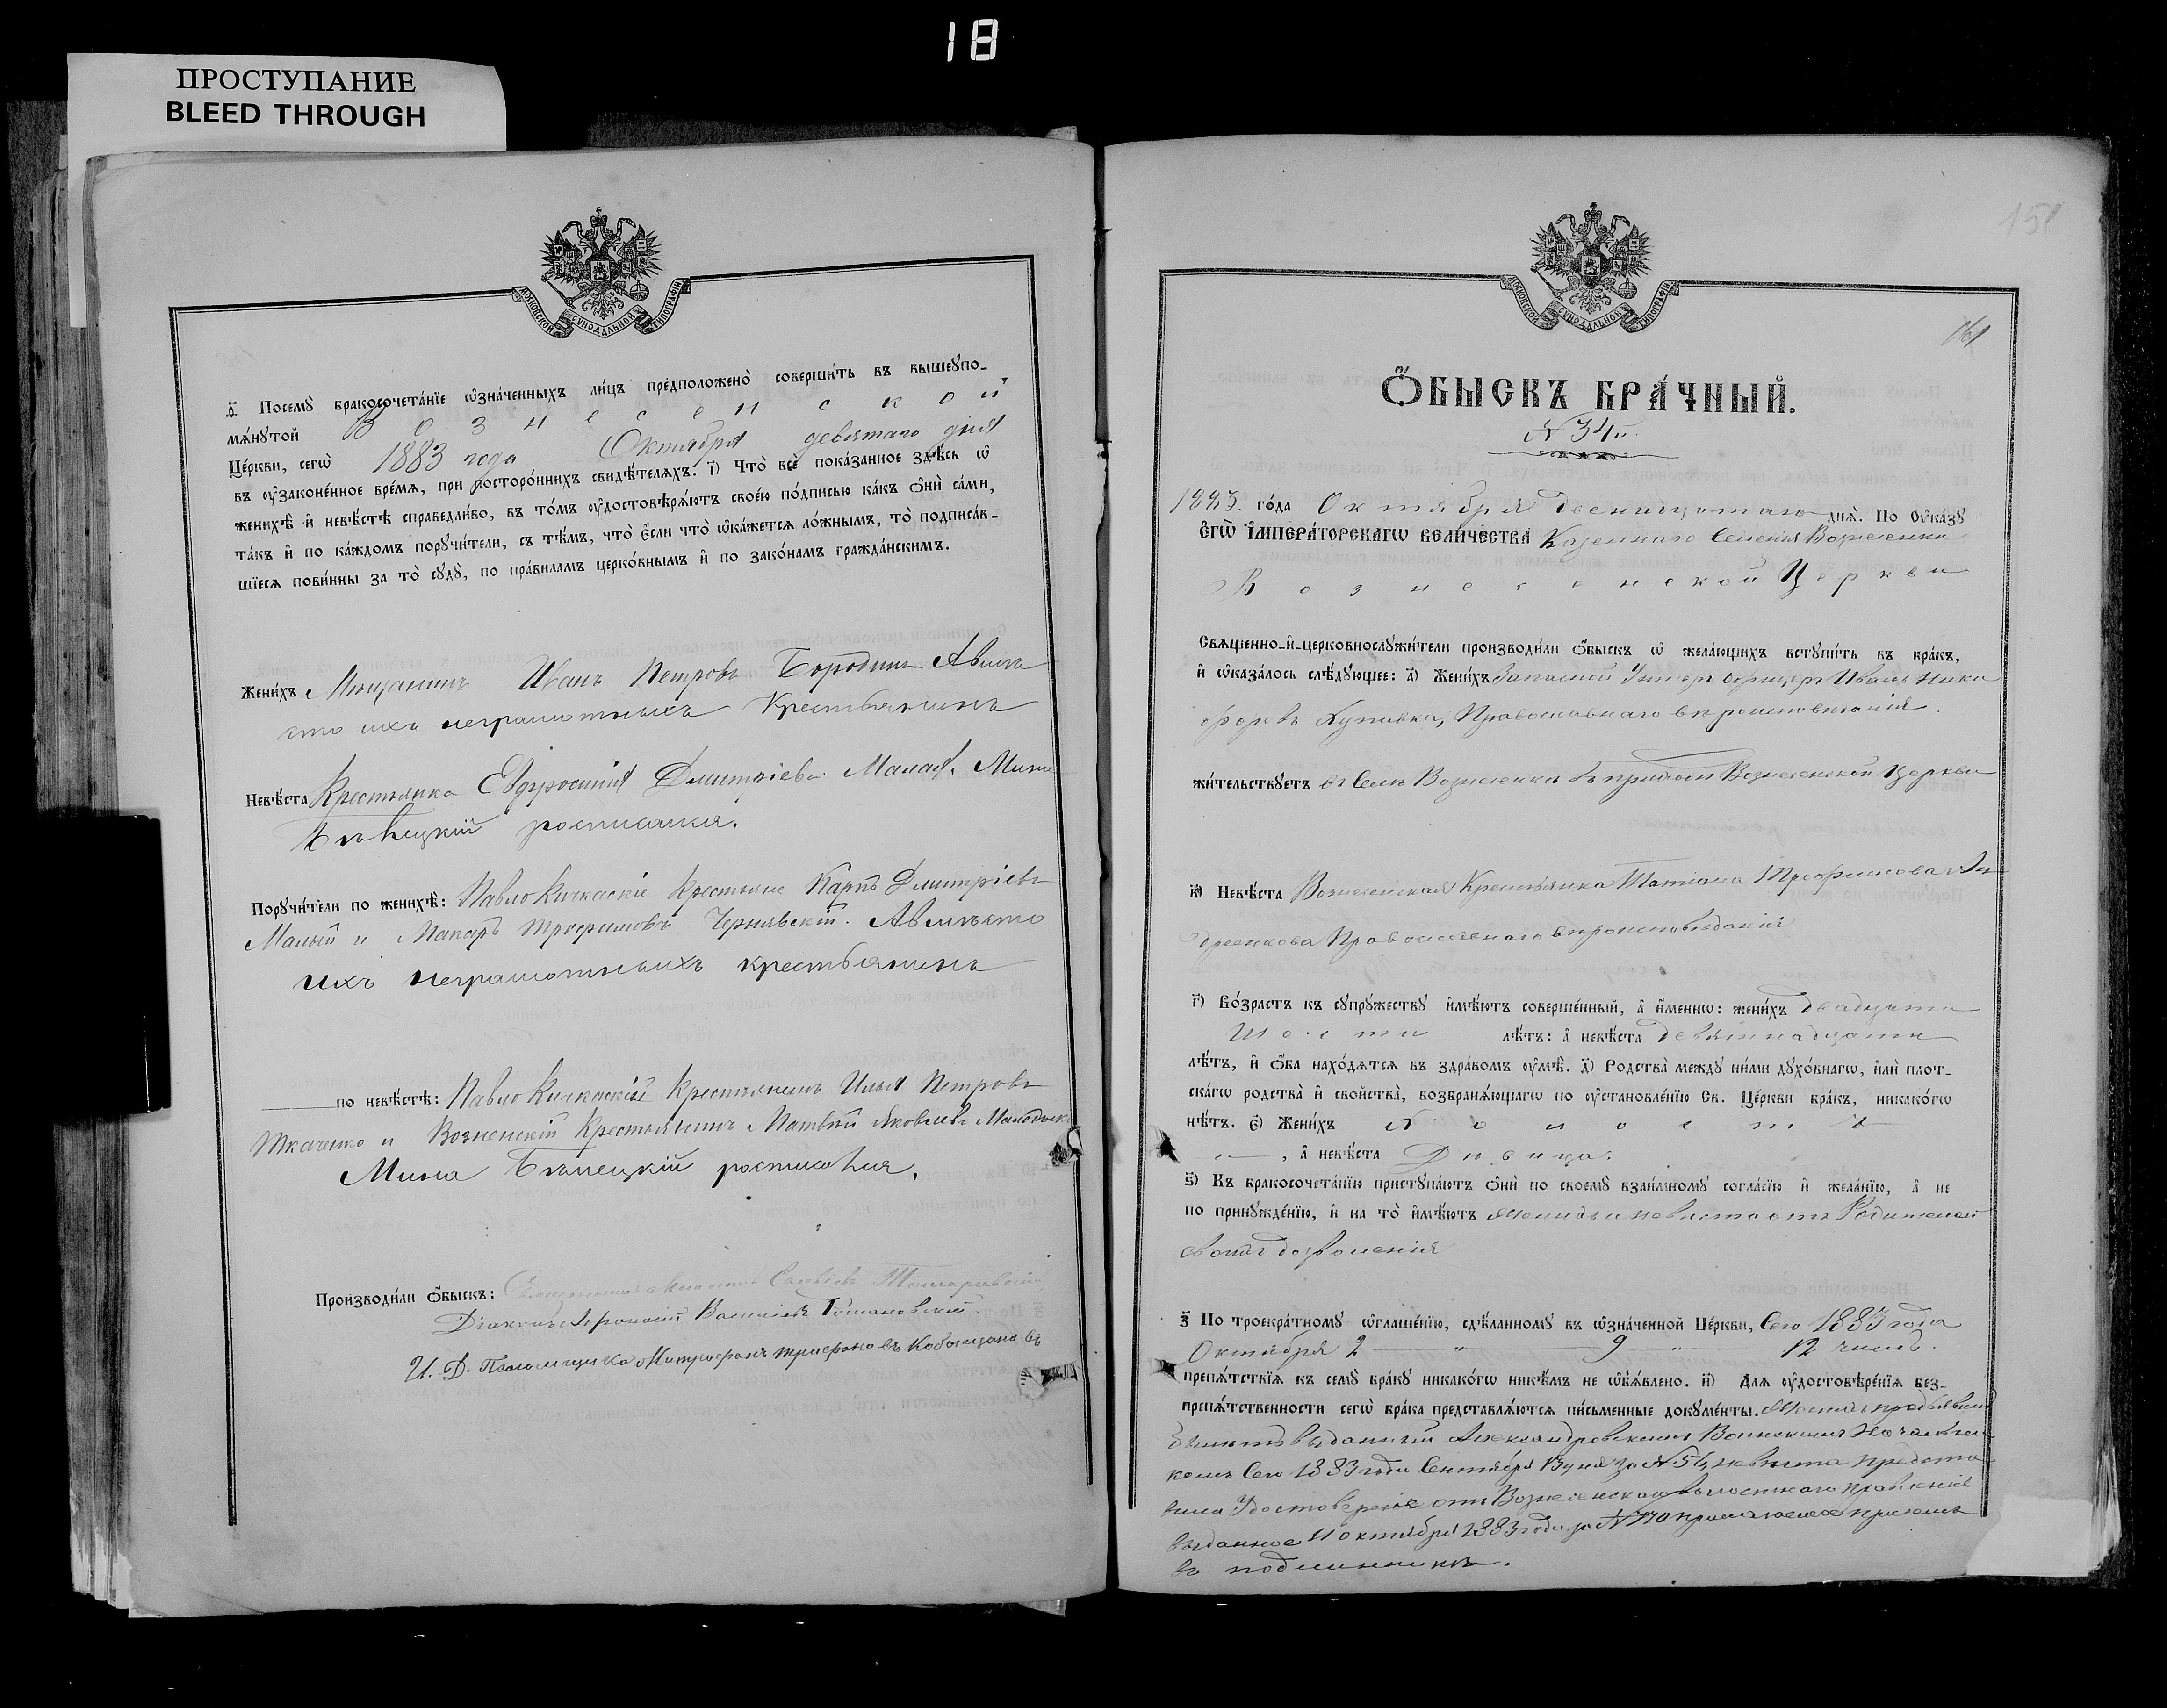 18
ПРОСТУПАНИЕ
BLEED THROUGH
МОСКОВСКОЙ СѴНОДАЛЬНОЙ ТИПОГРАФІИ
ѳ҃) Посемꙋ бракосочета́нїе ѡ҆зна́ченныхъ ли́цъ предположено̀ соверши́ть въ вышеꙋпо-
мѧ́нꙋтой Вознесенской
Це́ркви, сегѡ̀ 1883 года Октября девятаго дня
въ ᲂу҆законе́нное вре́мѧ, при посторо́ннихъ свидѣ́телѧхъ. і҃) Что̀ всѐ пока́занное здѣ́сь ѡ҆
женихѣ̀ и҆ невѣ́стѣ справедли́во, въ то́мъ ᲂу҆достовѣрѧ́ютъ свое́ю по́дписью ка́къ ѻ҆нѝ са́ми,
та́къ и҆ по ка́ждомъ порꙋчи́тели, съ тѣ́мъ, что̀ є҆́сли что̀ ѡ҆ка́жетсѧ ло́жнымъ, то̀ подписа́в-
шїесѧ пови́нны за то̀ сꙋдꙋ̀, по пра́виламъ церко́внымъ и҆ по зако́намъ гражда́нскимъ.
Жени́хъ Мещанинъ Иванъ Петровъ Бородинъ Авмѣ
сто ихъ неграмотныхъ Крестьянинъ
Невѣ́ста Крестьянка Евфросинія Дмитріева Малая. Мина
Бѣлецкій росписался.
Порꙋчи́тели по женихѣ̀: Павло Кичкаскіе Крестьяне Карпъ Дмитріевъ
Малый и Макаръ Трофимовъ Чернявскій. Авмѣсто
ихъ неграмотныхъ крестьянинъ
по невѣ́стѣ: Павло Кичкаскій Крестьянинъ Илья Петровъ
Ткаченко и Вознесенскій Крестьянинъ Матвѣй Яковлевъ
Мина Бѣлецкій росписался.
Производи́ли ѻ҆́быскъ: Священникъ
Діаконъ Василіевъ Романовскій
И. Д. Псаломщика Митрофанъ Трифоновъ
151
161
МОСКОВСКОЙ СѴНОДАЛЬНОЙ ТИПОГРАФІИ
Ѻ҆́БЫСКЪ БРА́ЧНЫЙ.
№ 34й.
1883. го́да Октября двенадцатаго днѧ̀. По ᲂу҆ка́зꙋ
є҆гѡ̀ і҆мпера́торскагѡ вели́чества Казеннаго Селенія Вознесенки
Вознесенской Церкви
Свѧще́нно-и҆-церковнослꙋжи́тели производи́ли ѻ҆́быскъ ѡ҆ жела́ющихъ встꙋпи́ть въ бра́къ,
и҆ ѡ҆каза́лось слѣ́дꙋющее: а҃) Жени́хъ Запасной Унтеръ офицеръ Иванъ Ники
форовъ Православнаго вѣроисповеданія.
жи́тельствꙋетъ въ Селе Вознесенки въ приходѣ Вознесенской Церкви
в҃) Невѣ́ста Вознесенская Крестьянка Татіана Трофимова Ан
дреенкова Православнаго вѣроисповѣданія
г҃) Во́зрастъ къ сꙋпрꙋ́жествꙋ и҆мѣ́ютъ соверше́нный, а҆ и҆́меннѡ: жени́хъ двадцати
шести лѣ́тъ: а҆ невѣ́ста девятнадцати
лѣ́тъ, и҆ ѻ҆́ба нахо́дѧтсѧ въ здра́вомъ ᲂу҆мѣ̀. д҃) Родства̀ междꙋ ни́ми дꙋхо́внагѡ, и҆лѝ плот-
ска́гѡ родства̀ и҆ свойства̀, возбранѧ́ющагѡ по ᲂу҆становле́нїю Св. Це́ркви бра́къ, никако́гѡ
нѣ́тъ. є҃) Жени́хъ холостъ
, а҆ невѣ́ста Дѣвица.
ѕ҃) Къ бракосочета́нїю пристꙋпа́ютъ ѻ҆нѝ по своемꙋ̀ взаи́мномꙋ согла́сїю и҆ жела́нїю, а҆ не
по принꙋжде́нїю, и҆ на то̀ и҆мѣ́ютъ женихъ и невѣста отъ Родителей
своихъ дозволенія
з҃ По троекра́тномꙋ ѡ҆глаше́нїю, сдѣ́ланномꙋ въ ѡ҆зна́ченной Це́ркви, Сего 1883 года
Октября 2 " 9 " 12 числъ.
препѧ́тствїѧ къ семꙋ̀ бра́кꙋ никако́гѡ никѣ́мъ не ѡ҆б̾ѧ́влено. и҃) Длѧ ᲂу҆достовѣре́нїѧ без-
препѧ́тственности сегѡ̀ бра́ка представлѧ́ютсѧ пи́сьменные докꙋме́нты. Женихъ предъявилъ
билетъ выданный Александровскимъ Воинскимъ Начальни
комъ Сего 1883 года Сентября невѣста предста
вила Удостовереніе отъ Вознесенскаго волостнаго правленія
выданное 11 октября 1883 года за № 770 прилагаемое присемъ
въ подлинникѣ.